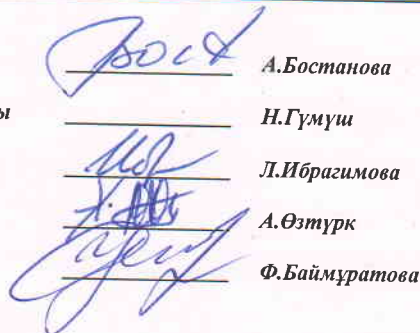 А.Бостанова
ы Н.Гүмүш
Л.Ибрагимова
А.Өзтүрк
Ф.Баймұратова